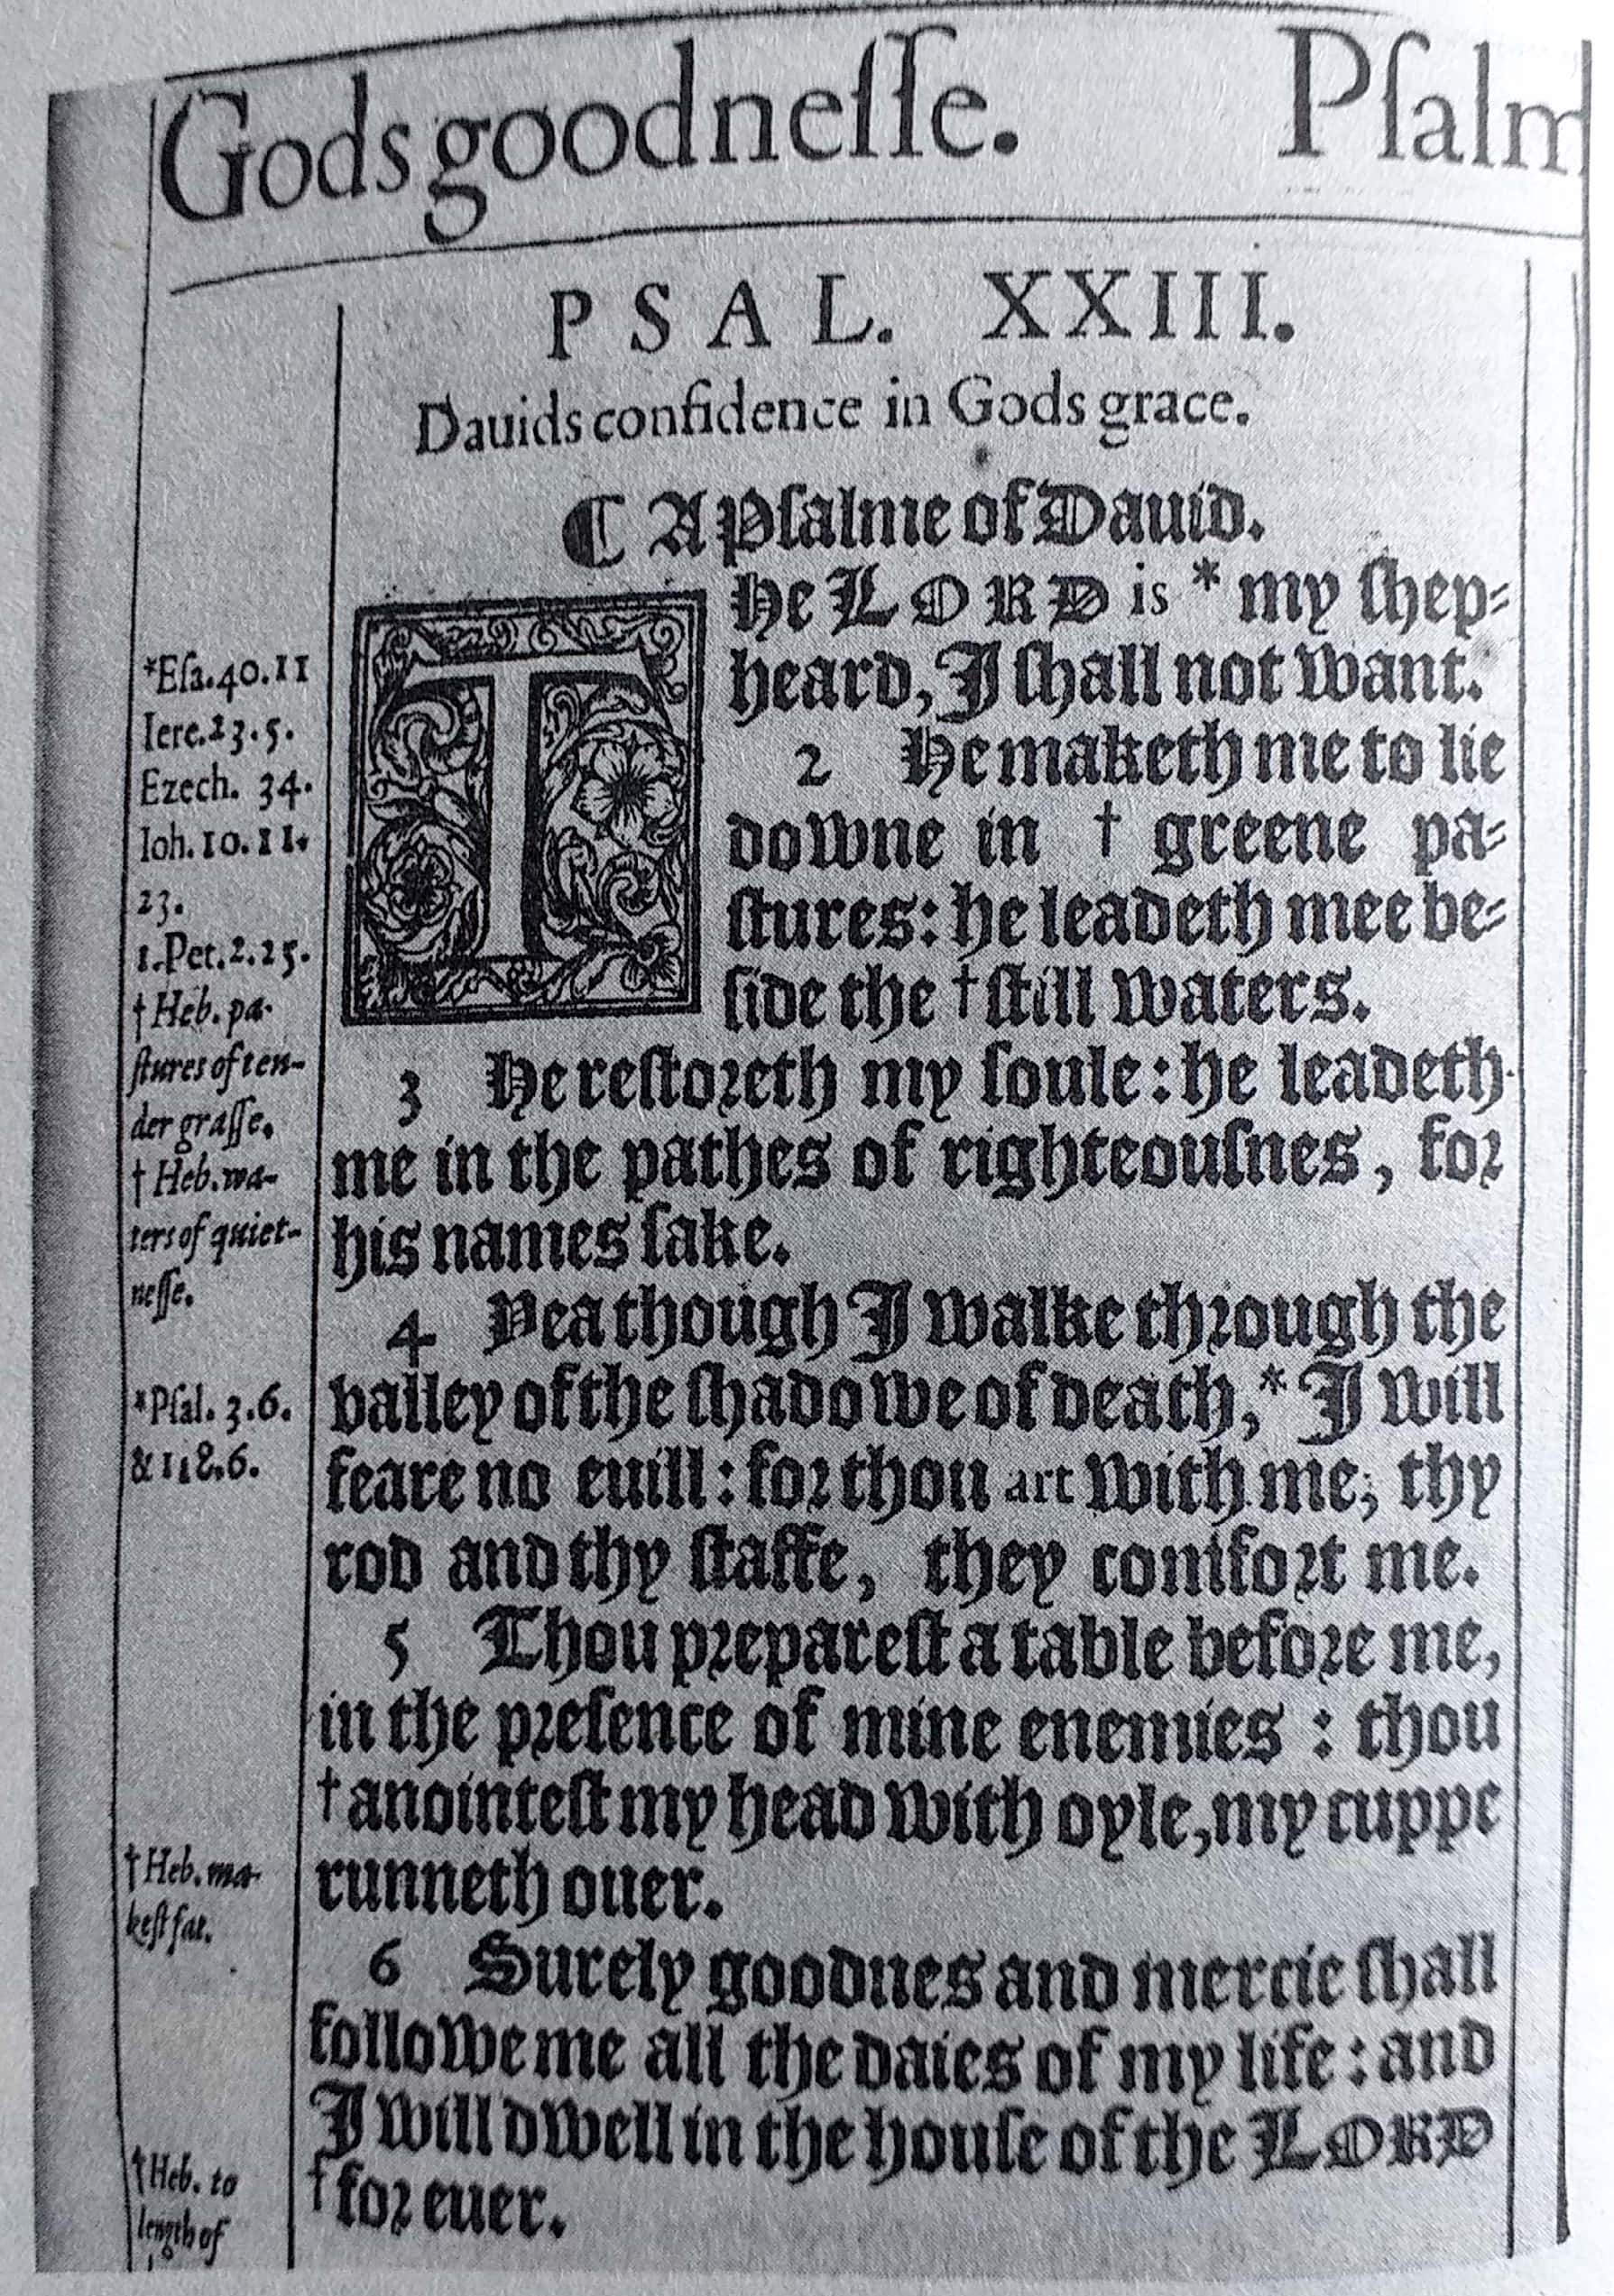 Gods goodneſſe. Pſalm
PSAL. XXIII.
Dauids confidence in Gods grace.
¶ A Pſalme of Dauid.
The LORD is * my ſhep-
heard, I ſhall not want.
2 He maketh me to lie
downe in † greene pa-
ſtures: he leadeth mee be-
ſide the † ſtill waters.
3 He reſtoreth my ſoule: he leadeth
me in the pathes of righteouſnes, for
his names ſake.
4 Yea though I walke through the
valley of the ſhadowe of death, * I will
feare no euill: for thou art with me, thy
rod and thy ſtaffe, they comfort me.
5 Thou prepareſt a table before me,
in the preſence of mine enemies : thou
† anointeſt my head with oyle, my cuppe
runneth ouer.
6 Surely goodnes and mercie ſhall
followe me all the daies of my life : and
I will dwell in the houſe of the LORD
† for euer.
*Eſa.40.11
Iere.23.5.
Ezech. 34.
Ioh.10.11.
23.
1.Pet.2.25.
† Heb. pa-
ſtures of ten-
der graſſe.
† Heb. wa-
ters of quiet-
neſſe.
*Pſal. 3.6.
& 118.6.
† Heb. ma-
keſt fat.
† Heb. to
length of